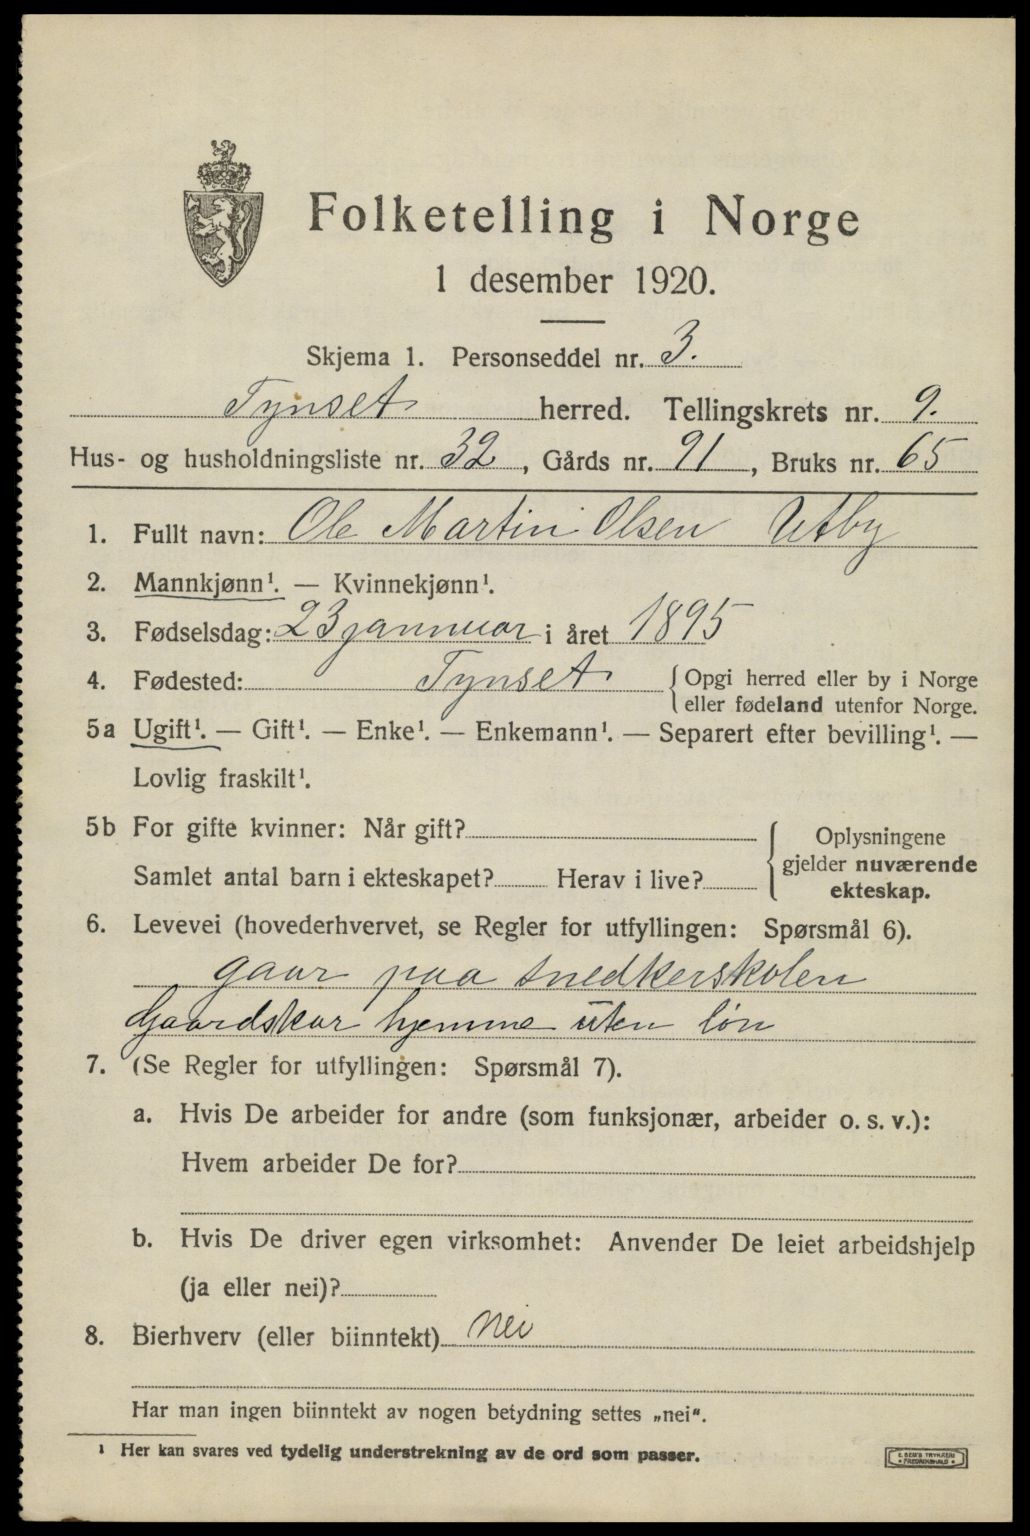 Folketelling i Norge
1 desember 1920.
Skjema 1. Personseddel nr. 3.
Tynset herred. Tellingskrets nr. 9.
Hus- og husholdningsliste nr. 32, Gårds nr. 91, Bruks nr. 65
1. Fullt navn: Ole Martin Olsen Utby
2. Mannkjønn¹. — Kvinnekjønn¹.
3. Fødselsdag: 23 januar i året 1895
4. Fødested: Tynset { Opgi herred eller by i Norge
eller fødeland utenfor Norge.
5a Ugift¹. — Gift¹. — Enke¹. — Enkemann¹. — Separert efter bevilling¹. —
Lovlig fraskilt¹.
5b For gifte kvinner: Når gift?
Samlet antal barn i ekteskapet? Herav i live?
Oplysningene
gjelder nuværende
ekteskap.
6. Levevei (hovederhvervet, se Regler for utfyllingen: Spørsmål 6).
gaar paa snedkerskolen
Gaardskar hjemme uten løn
7. (Se Regler for utfyllingen: Spørsmål 7).
a. Hvis De arbeider for andre (som funksjonær, arbeider o. s. v.):
Hvem arbeider De for?
b. Hvis De driver egen virksomhet: Anvender De leiet arbeidshjelp
(ja eller nei)?
8. Bierhverv (eller biinntekt) Nei
Har man ingen biinntekt av nogen betydning settes „nei".
¹ Her kan svares ved tydelig understrekning av de ord som passer.
E. SEM'S TRYKKERI
FREDRIKSHALD